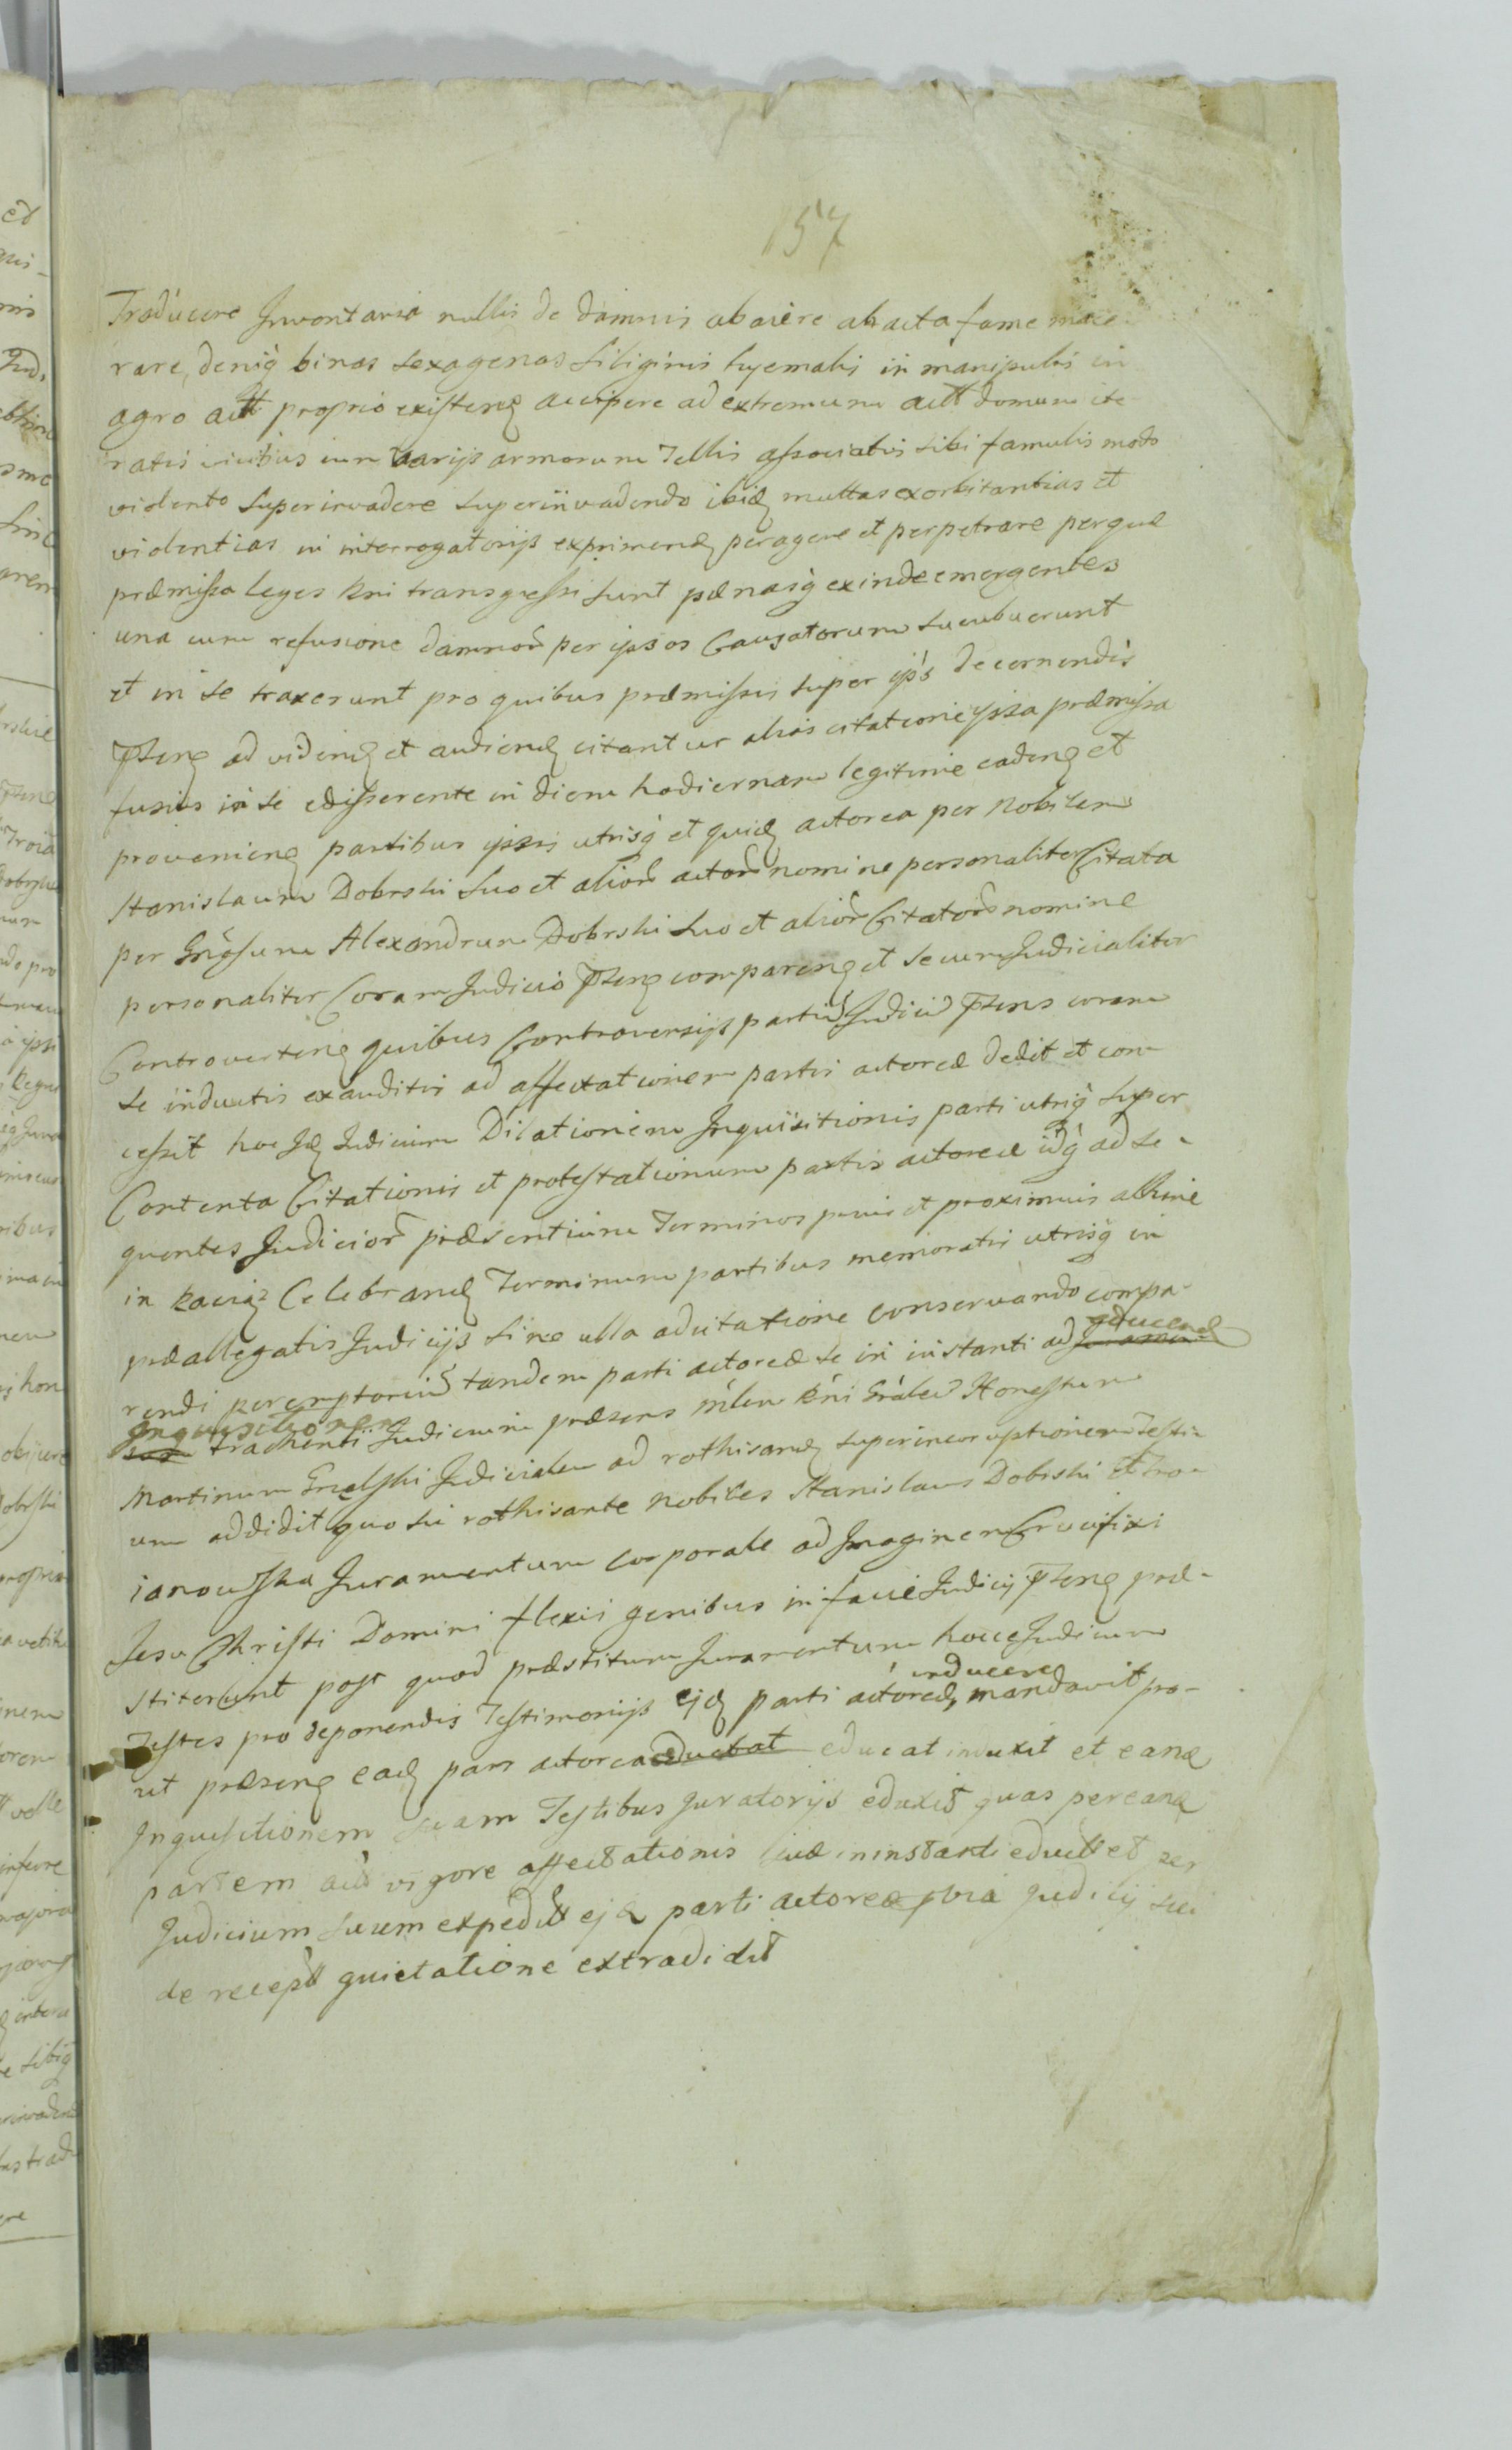 157
Traducere Inventaria nullis de damnis abacere abacta fame mace-
rare, deniq binas sexagenas siliginis hyemalis in manipulis in
agro actt proprio existenq accipere ad extremum actt domum ite-
ratis vicibus cum varijs armorum Tellis associatis sibi famulis modo
violento superinvadere superinvadendo ibidq multas exorbitantias et
violentias in interrogatorijs exprimendq peragere et perpetrare perquæ
præmissa leges Rni transgressi sunt pænasq exinde emergentes
una cum refusione damnor per ipsos Causatorum sucubuerunt
et in se traxerunt pro quibus præmissis super ipsis decernendis
Pttenq ad videndq et audiendq citantur alias citatione ipsa præmissa
fusius in se edisserente in diem hodiernam legitime cadenq et
provenienq partibus ipsis utrisq et quidq actorea per Nobilem
Stanislaum Dobrski suo et alior actor nomine personaliter Citata
per Gnosum Alexandrum Dobrski suo et alior Citator nomine
personaliter Coram Judicio Pttenq comparenq et secum Judicialiter
Controvertenq quibus Controversijs partiu Judiciu Pttens coram
se inductis exauditis ad affectationem partis actoreæ dedit et con-
cessit hoc Idq Judicium Dilationem Inquisitionis parti utriq super
Contenta Citationis et protestationum partis actoreæ idq ad se-
quentes Judicior præsentium Terminos primi et proximuis abhinc
in Raciaz Celebrandq Terminum partibus memoratis utrisq in
præallegatis Judicijs sine ulla adcitatione conservando compa-
rendi peremptoriu tandem parti actoreæ se in instanti ad educend
Inquisitionem trachenti Judicium præsens mlem Rni Gralem Honestum
Martinum Gnelski Judicialem ad rothisandq super incoruptionem Testi-
um addidit quo sic rothisante Nobiles Stanislaus Dobrski et Tro-
ianowska Juramentum corporale ad Imaginem Crucifixi
Jesu Christi Domini flexis genibus in facie Judicij Pttenq præ-
stiterunt post quod præstitum Juramentum hocce Judicium
Testes pro deponendis Testimonijs ejdq parti actoreæ inducere mandavit pro-
ut præsenq eadq pars actorea eductat educat induxit et eandq
Inquisitionem suam Testibus Juratorijs eduxit quas per eandq
partem actt vigore affectationis suæ in instanti eductt et per
Judicium suum expeditt ejdq parti actoreæ Judicij sui
de receptt quietatione extradidit